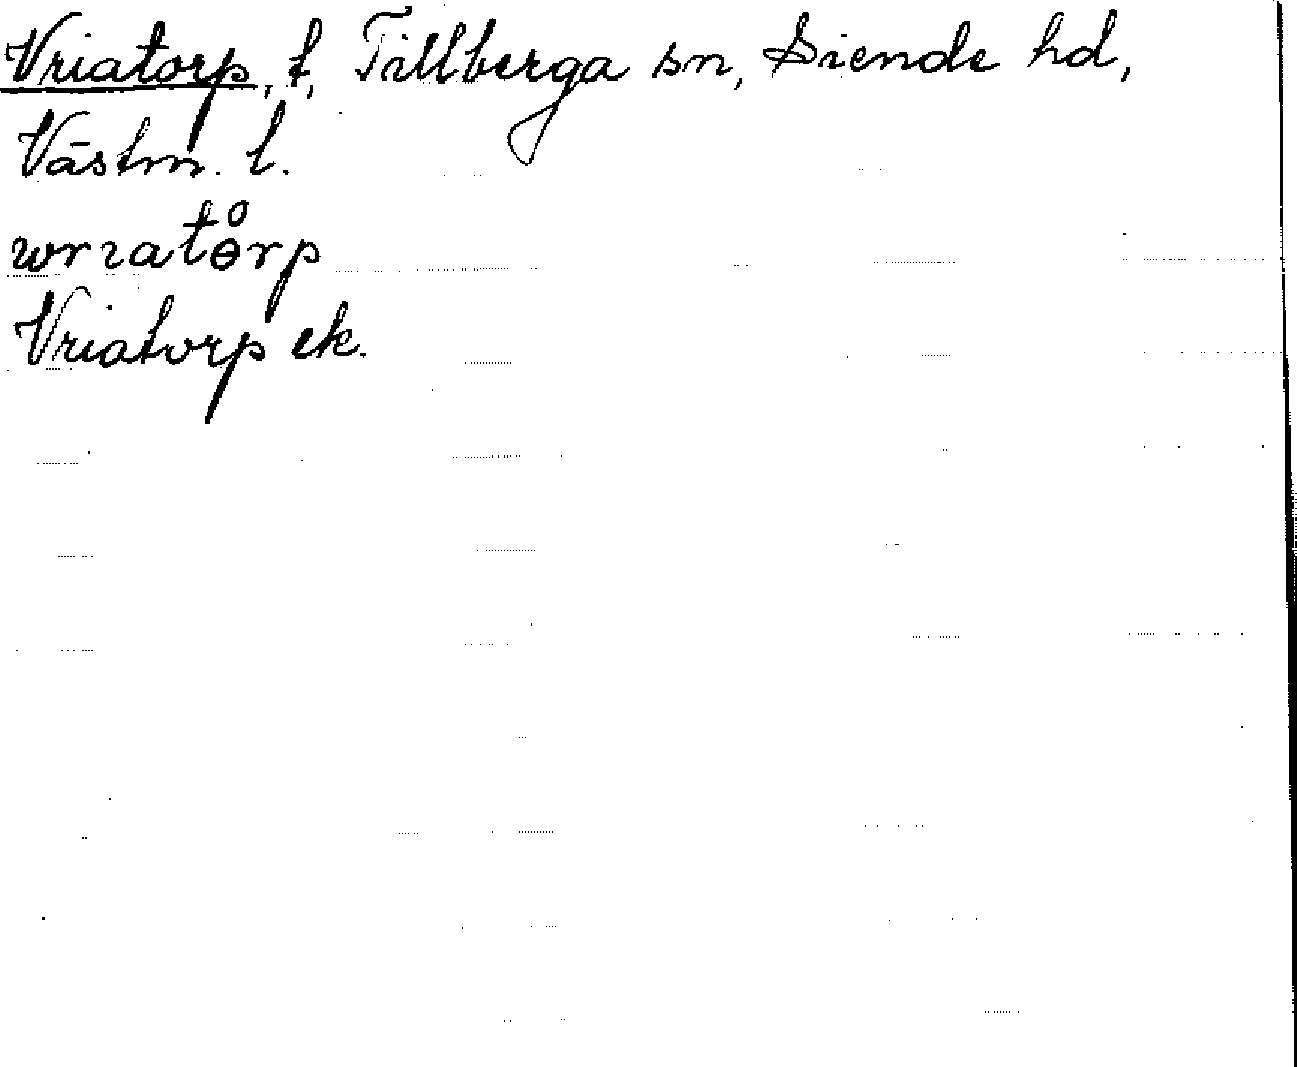 Vriatorp, t, Tillberga sn, Siende hd,
Västm. l.
wrıatɵ̊rp
Vriatorp ek.